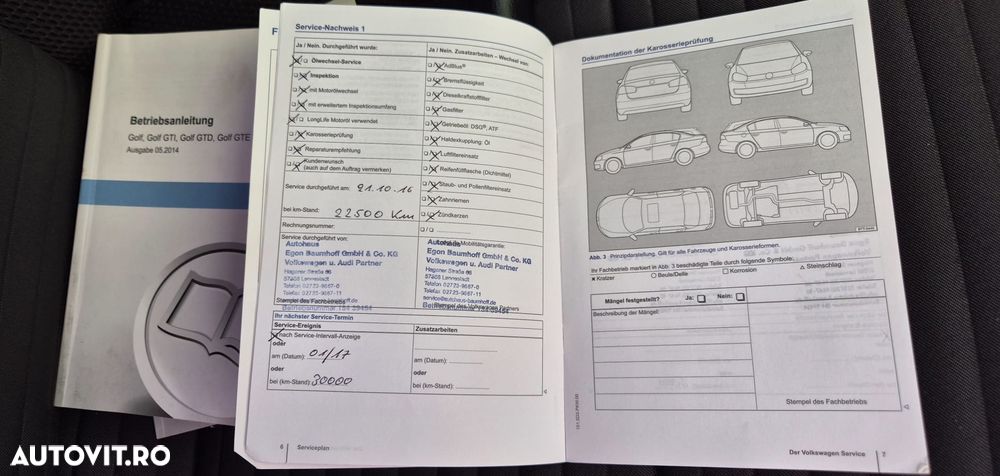 Betriebsanleitung
Golf, Golf GTI, Golf GTD, Golf GTE
Ausgabe 05.2014
F
Service-Nachweis 1
Ja / Nein. Durchgeführt wurde:
Ölwechsel-Service
Inspektion
mit Motorölwechsel
mit erweitertem Inspektionsumfang
LongLife Motoröl verwendet
Karosserieprüfung
Reparaturempfehlung
Kundenwunsch
(auch auf dem Auftrag vermerken)
Service durchgeführt am: 21.10.16
bei km-Stand: 22500 Km
Rechnungsnummer:
Service durchgeführt von:
Autohaus
Egon Baumhoff GmbH & Co. KG
Volkswagen u. Audi Partner
Hagener Straße 86
57368 Lennestadt
Telefon 02723-9687-0
Telefax 02723-9687-11
Stempel des Fachbetriebs
Betriebsnummer 184 39454
Ja / Nein. Zusatzarbeiten – Wechsel von:
AdBlue®
Bremsflüssigkeit
Dieselkraftstofffilter
Gasfilter
Getriebeöl: DSG®, ATF
Haldexkupplung: Öl
Luftfiltereinsatz
Reifenfüllflasche (Dichtmittel)
Staub- und Pollenfiltereinsatz
Zahnriemen
Zündkerzen
Mobilitätsgarantie:
Autohaus
Egon Baumhoff GmbH & Co. KG
Volkswagen u. Audi Partner
Hagener Straße 86
57368 Lennestadt
Telefon 02723-9687-0
Telefax 02723-9687-11
service@autohaus-baumhoff.de
Stempel des Volkswagen Partners
Ihr nächster Service-Termin
Service-Ereignis
nach Service-Intervall-Anzeige
oder
am (Datum): 01/17
oder
bei (km-Stand): 30000
Zusatzarbeiten
am (Datum):
oder
bei (km-Stand):
6 Serviceplan
Dokumentation der Karosserieprüfung
Abb. 3 Prinzipdarstellung. Gilt für alle Fahrzeuge und Karosserieformen.
Ihr Fachbetrieb markiert in Abb. 3 beschädigte Teile durch folgende Symbole:
× Kratzer ○ Beule/Delle □ Korrosion △ Steinschlag
Mängel festgestellt? Ja: Nein:
Beschreibung der Mängel:
Stempel des Fachbetriebs
Der Volkswagen Service
AUTOVIT.RO